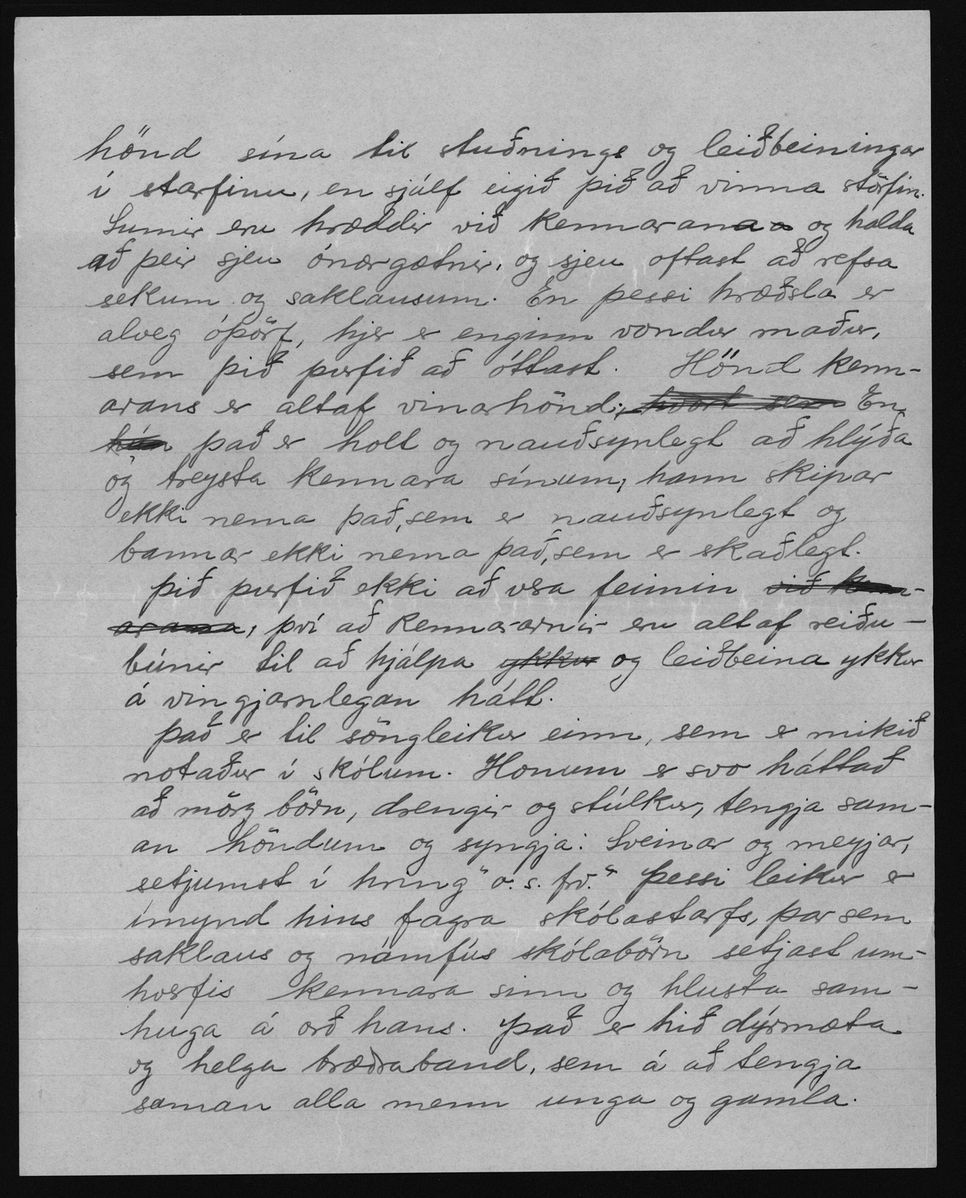 hönd sína til stuðnings og leiðbeiningar
í starfinu, en sjálf eigið þið að vinna störfin.
Sumir eru hræddir við kennarana og halda
að þeir sjeu ónærgætnir, og sjeu oftast að refsa
sekum og saklausum. En þessi hræðsla er
alveg óþörf, hjer er enginn vondur maður,
sem þið þurfið að óttast. Hönd kenn-
arans er altaf vinarhönd; hvort sem En
hún það er holt og nauðsynlegt að hlýða
og treysta kennara sínum, hann skipar
ekki nema það, sem er nauðsynlegt og
bannar ekki nema það, sem er skaðlegt.
Þið þurfið ekki að vera feimin við kenn-
arana, því að kennararnir eru altaf reiðu-
búnir til að hjálpa ykkur og leiðbeina ykkur
á vingjarnlegan hátt.
Það er til söngleikur einn, sem er mikið
notaður í skólum. Honum er svo háttað
að mörg börn, drengir og stúlkur, tengja sam-
an höndum og syngja: Sveinar og meyjar,
setjumst í hring" o. s. frv." Þessi leikur er
ímynd hins fagra skólastarfs, þar sem
saklaus og námfús skólabörn setjast um-
hverfis kennara sinn og hlusta sam-
huga á orð hans. Það er hið dýrmæta
og helga bræðraband, sem á að tengja
saman alla menn unga og gamla.